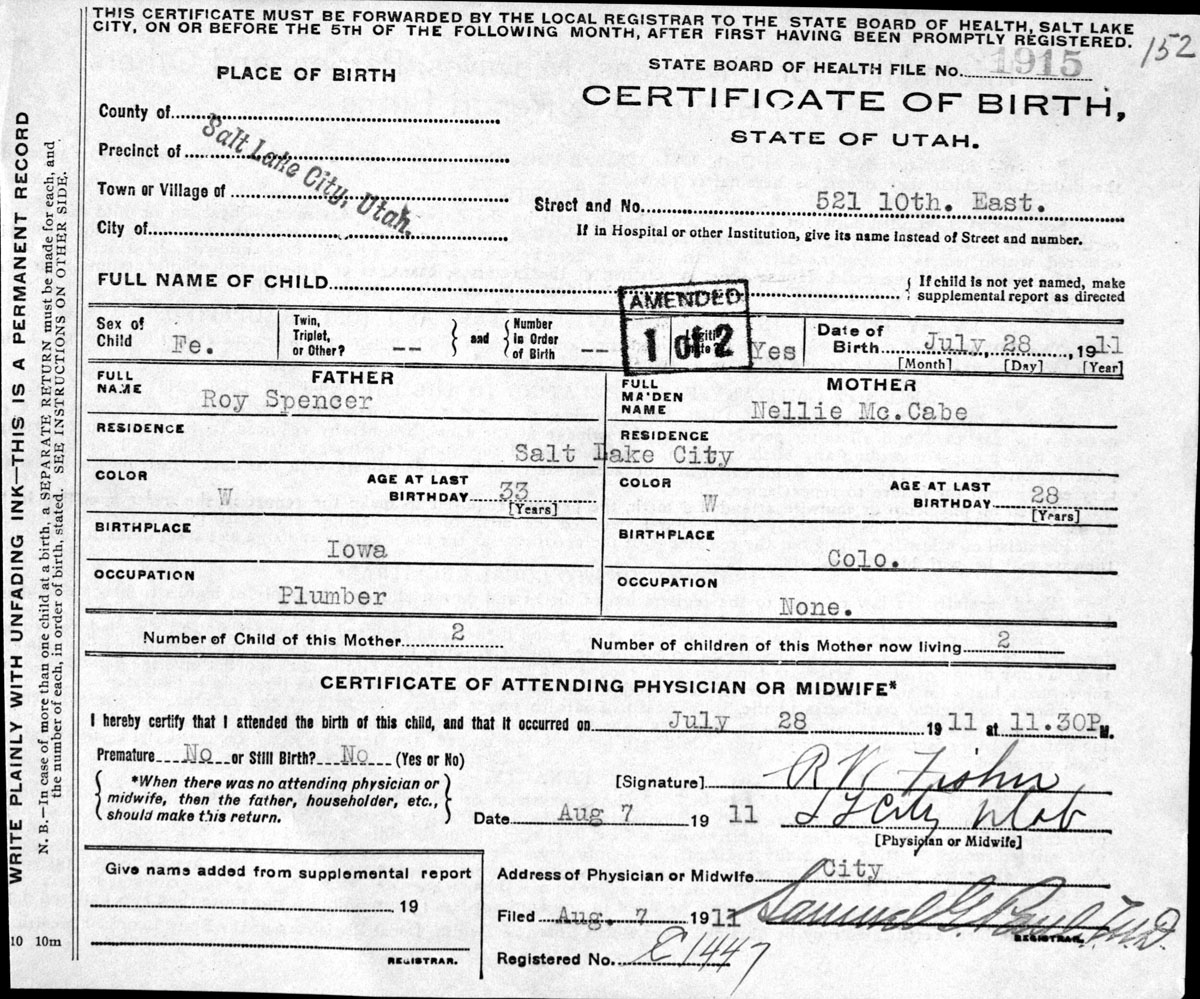 THIS CERTIFICATE MUST BE FORWARDED BY THE LOCAL REGISTRAR TO THE STATE BOARD OF HEALTH, SALT LAKE
CITY, ON OR BEFORE THE 5TH OF THE FOLLOWING MONTH, AFTER FIRST HAVING BEEN PROMPTLY REGISTERED.
152
WRITE PLAINLY WITH UNFADING INK—THIS IS A PERMANENT RECORD
N. B.—In case of more than one child at a birth, a SEPARATE RETURN must be made for each, and
the number of each, in order of birth, stated. SEE INSTRUCTIONS ON OTHER SIDE.
PLACE OF BIRTH
STATE BOARD OF HEALTH FILE No. 1915
CERTIFICATE OF BIRTH,
STATE OF UTAH.
County of
Precinct of
Town or Village of
City of
Salt Lake City, Utah.
Street and No. 521 10th. East.
If in Hospital or other Institution, give its name instead of Street and number.
FULL NAME OF CHILD
If child is not yet named, make
supplemental report as directed
AMENDED
1 of 2
Sex of Child Fe.
Twin, Triplet, or Other? --
and
Number in Order of Birth --
Yes
Date of Birth July, 28, 1911
[Month] [Day] [Year]
FATHER
FULL NAME Roy Spencer
MOTHER
FULL MAIDEN NAME Nellie Mc.Cabe
RESIDENCE
RESIDENCE
Salt Lake City
COLOR W
AGE AT LAST BIRTHDAY 33
[Years]
COLOR W
AGE AT LAST BIRTHDAY 28
[Years]
BIRTHPLACE Iowa
BIRTHPLACE Colo.
OCCUPATION Plumber
OCCUPATION None.
Number of Child of this Mother 2
Number of children of this Mother now living 2
CERTIFICATE OF ATTENDING PHYSICIAN OR MIDWIFE*
I hereby certify that I attended the birth of this child, and that it occurred on July 28 1911 at 11.30P M.
Premature No or Still Birth? No (Yes or No)
*When there was no attending physician or
midwife, then the father, householder, etc.,
should make this return.
[Signature] R V
Date Aug 7 1911
[Physician or Midwife]
Give name added from supplemental report
19
REGISTRAR.
Address of Physician or Midwife City
Filed Aug. 7 1911 Samuel G. Paul M.D.
REGISTRAR.
Registered No. 1447
10 10m